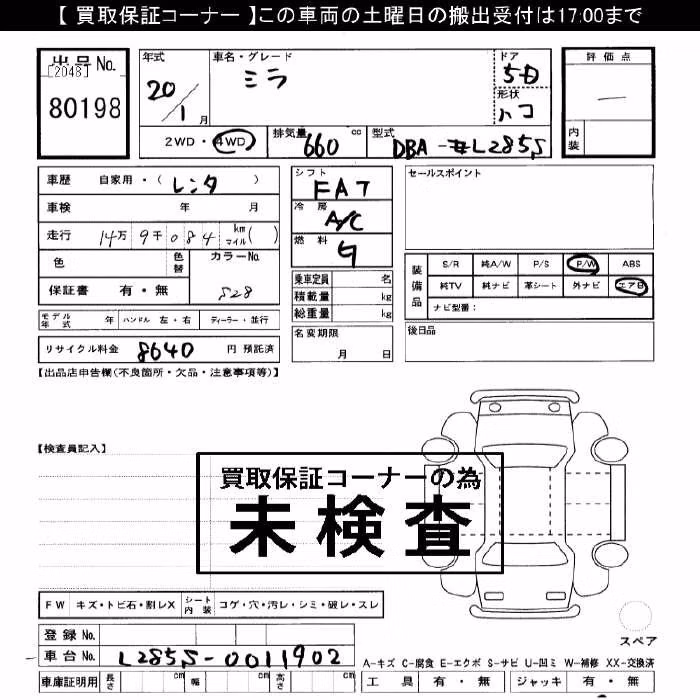 【 買取保証コーナー 】この車両の土曜日の搬出受付は17:00まで
出品 No.
[2048]
80198
年式
20/1月
車名・グレード
ミラ
ドア
5D
形状
ハコ
2WD・4WD
排気量
660 cc
型式
DBA-L285S
評価点
—
内装
車歴 自家用・( レンタ )
車検 年 月
走行 14万 9千 084 km マイル( )
色 色替 カラーNo.
S28
保証書 有・無
モデル年式 年 ハンドル 左・右 ディーラー・並行
リサイクル料金 8640 円 預託済
シフト
FAT
冷房
A/C
燃料
G
乗車定員 名
積載量 kg
総重量 kg
名変期限
月 日
セールスポイント
装備品
S/R 純A/W P/S P/W ABS
純TV 純ナビ 革シート 外ナビ エアB
ナビ型番:
後日品
【出品店申告欄(不良箇所・欠品・注意事項等)】
【検査員記入】
買取保証コーナーの為
未検査
FW キズ・トビ石・割レX シート内装 コゲ・穴・汚レ・シミ・破レ・スレ
登録 No.
車台 No. L285S-0011902
車庫証明用 長さ cm 幅 cm 高さ cm
スペア
A-キズ C-腐食 E-エクボ S-サビ U-凹ミ W-補修 XX-交換済
工具 有・無 ジャッキ 有・無